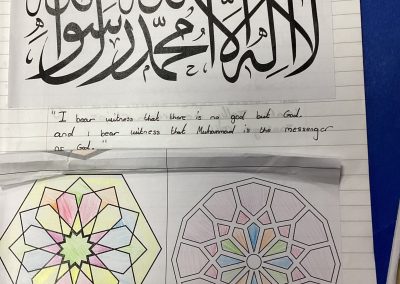 لا إله إلا الله محمد رسول الله
"I bear witness that there is no god but God.
and i bear witness that Muhammad is the messenger
of God."